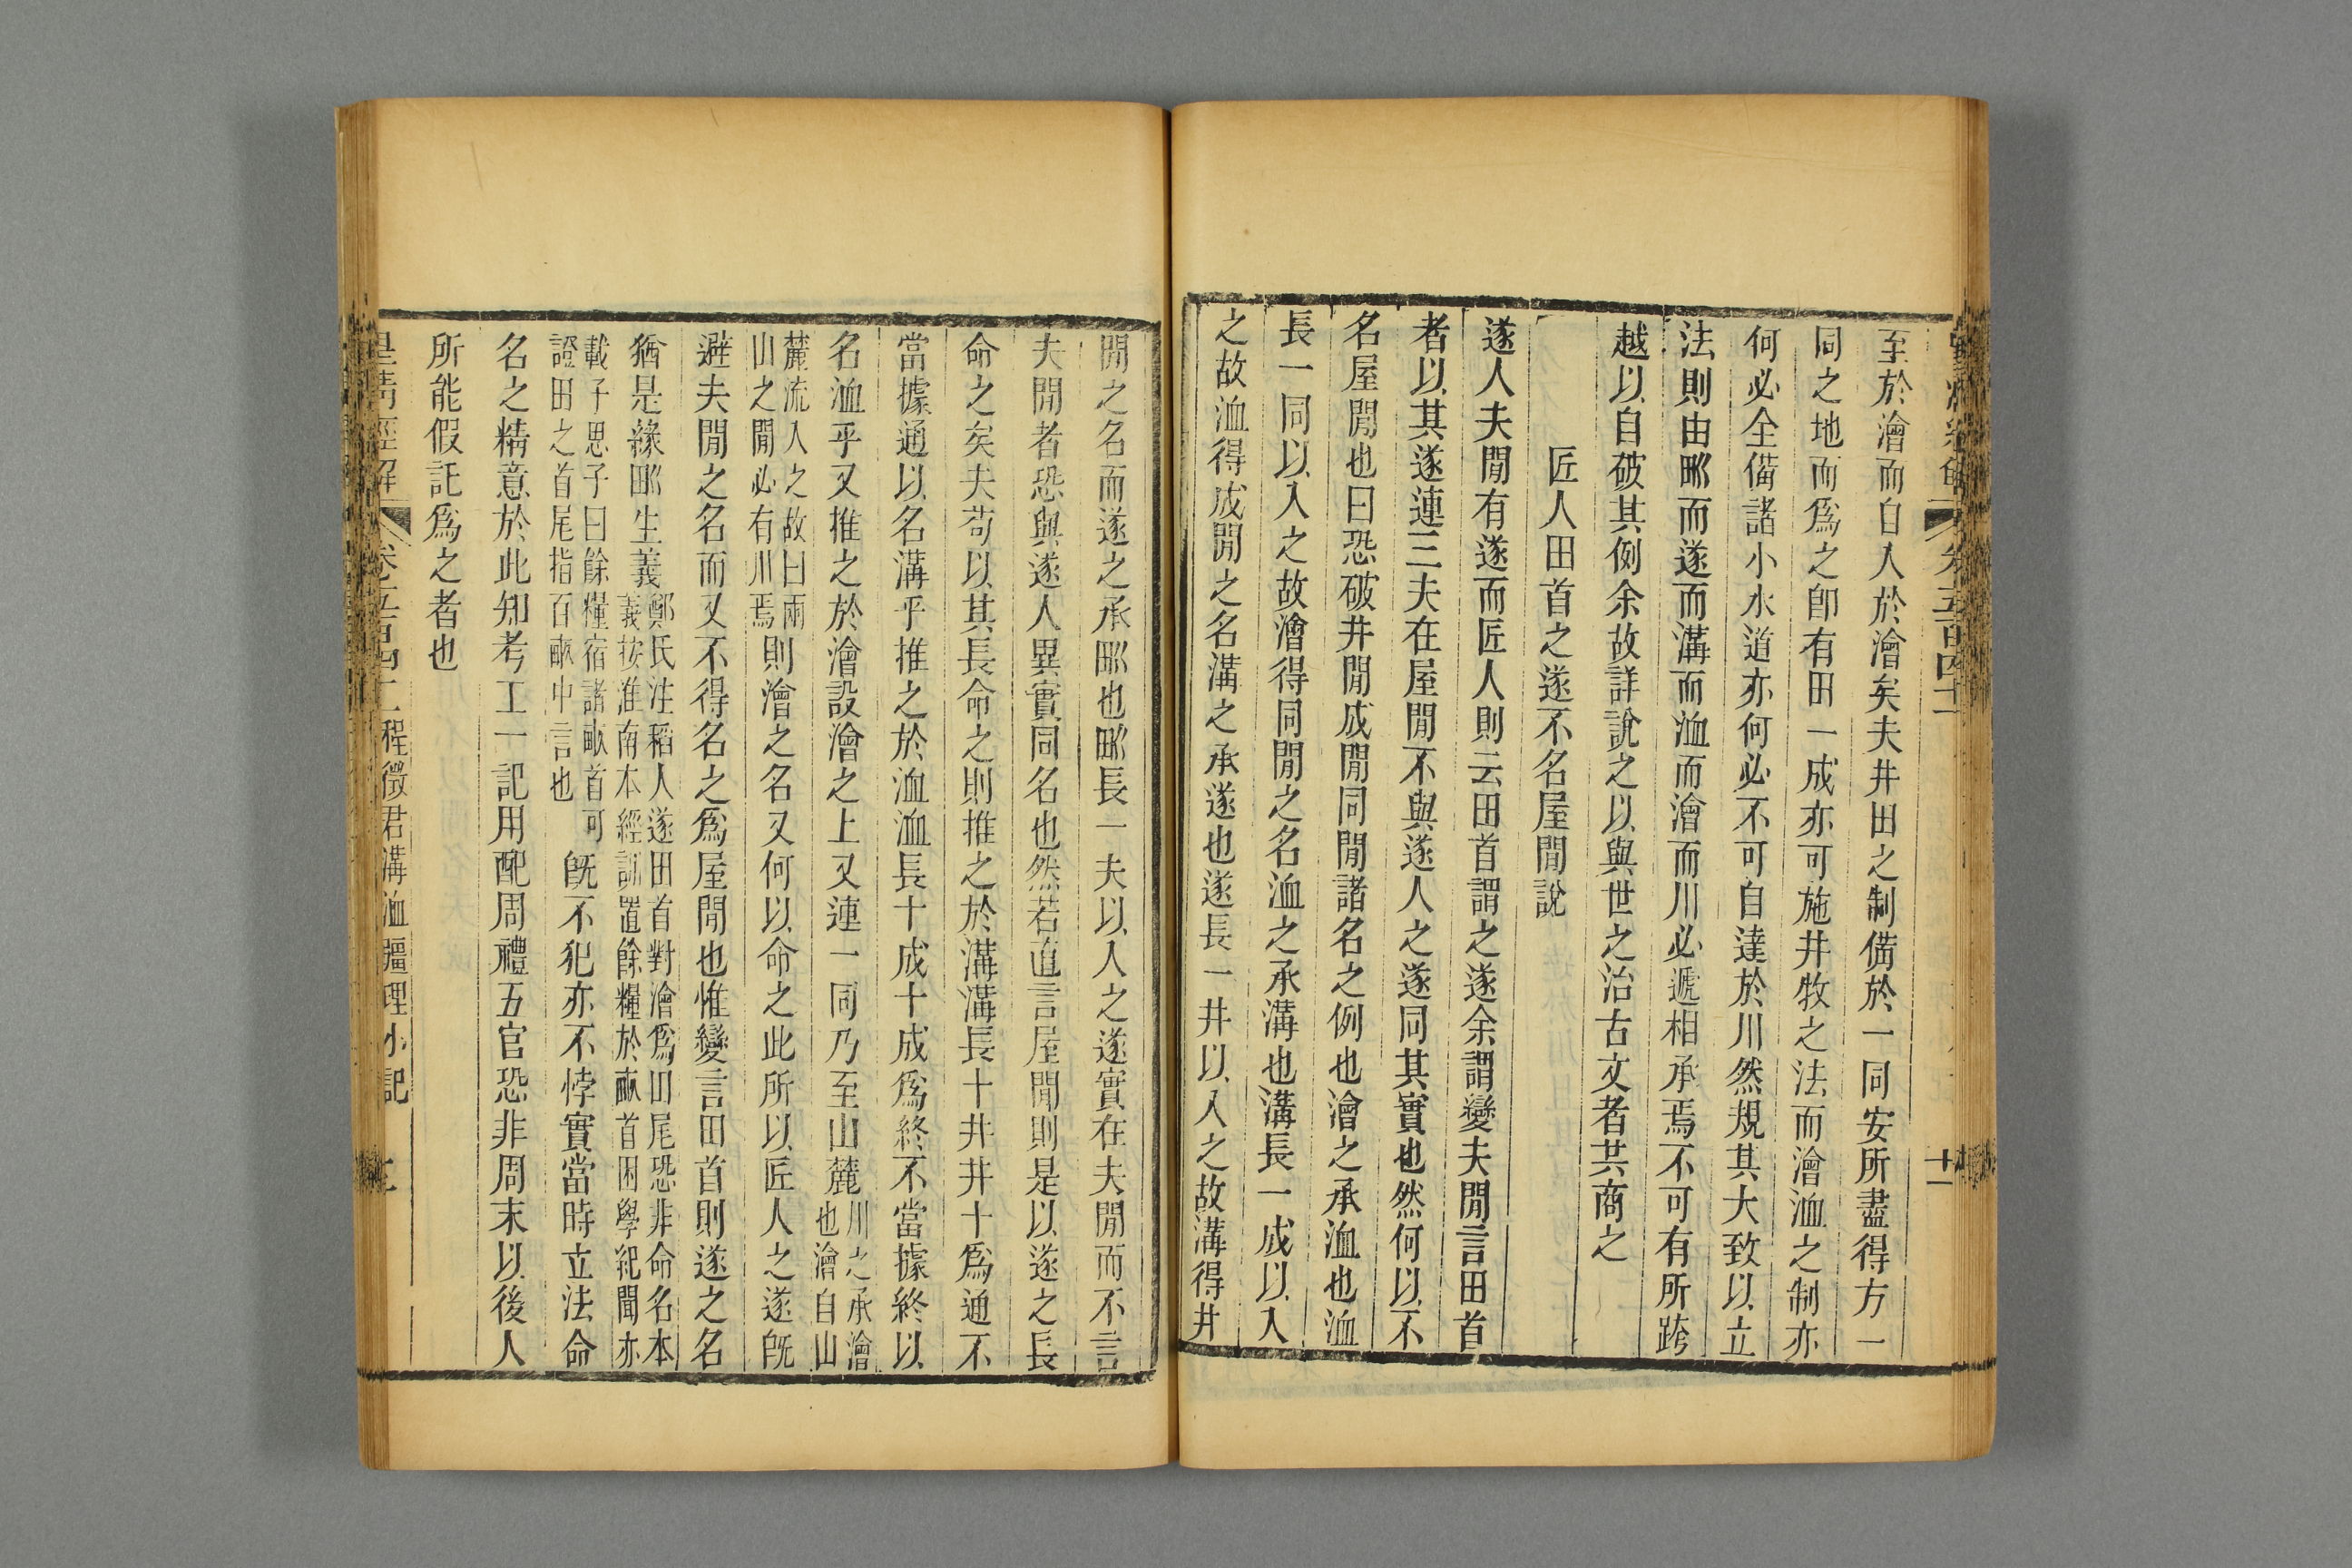 至於澮而自入於澮矣夫井田之制備於一同安所盡得方一
同之地而爲之卽有田一成亦可施井牧之法而澮洫之制亦
何必全備諸小水道亦何必不可自達於川然規其大致以立
法則由𤰕而遂而溝而洫而澮而川必遞相承焉不可有所跨
越以自破其例余故詳說之以與世之治古文者共商之
匠人田首之遂不名屋閒說
遂人夫閒有遂而匠人則云田首謂之遂余謂變夫閒言田首
者以其遂連三夫在屋閒不與遂人之遂同其實也然何以不
名屋閒也曰恐破井閒成閒同閒諸名之例也澮之承洫也洫
長一同以入之故澮得同閒之名洫之承溝也溝長一成以入
之故洫得成閒之名溝之承遂也遂長一井以入之故溝得井
閒之名而遂之承𤰕也𤰕長一夫以入之遂實在夫閒而不言
夫閒者恐與遂人異實同名也然若直言屋閒則是以遂之長
命之矣夫苟以其長命之則推之於溝溝長十井井十爲通不
當據通以名溝乎推之於洫洫長十成十成爲終不當據終以
名洫乎又推之於澮設澮之上又連一同乃至山麓川之承澮
也澮自山
麓流入之故曰兩
山之閒必有川焉則澮之名又何以命之此所以匠人之遂旣
避夫閒之名而又不得名之爲屋閒也惟變言田首則遂之名
猶是緣𤰕生義鄭氏注稻人遂田首對澮爲田尾恐非命名本
義按淮南本經訓置餘糧於畝首困學紀聞亦
載子思子曰餘糧宿諸畝首可
證田之首尾指百畝中言也旣不犯亦不悖實當時立法命
名之精意於此知考工一記用配周禮五官恐非周末以後人
所能假託爲之者也
皇清經解 卷五百四十二 程徵君溝洫疆理小記